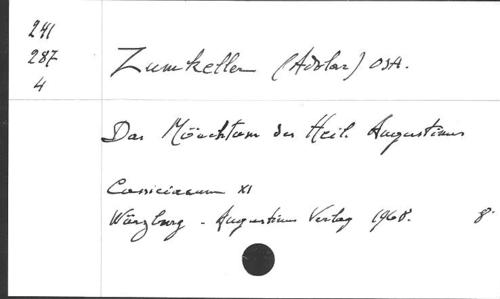 241
287
4
Zumkeller (Adolar) OSA.
Das Mönchtum des Heil. Augustinus
Cassiciacum XI
Würzburg - Augustinus Verlag 1968. 8°